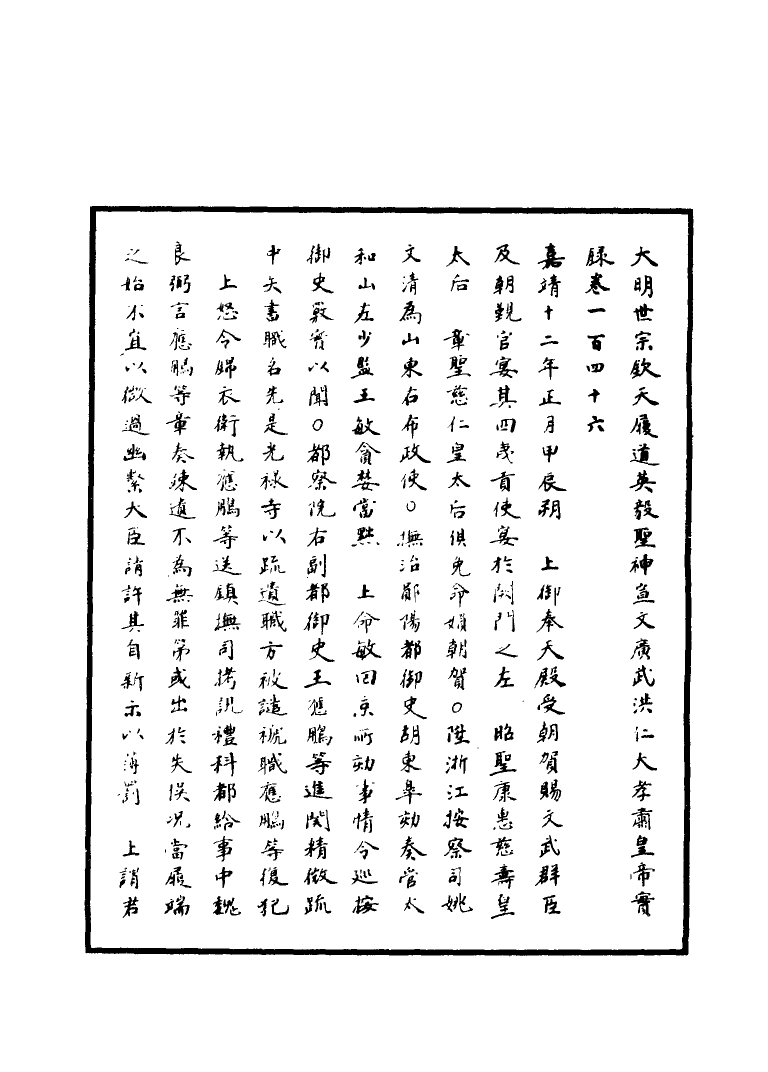 大明世宗欽天履道英毅聖神宣文廣武洪仁大孝肅皇帝實
録卷一百四十六
嘉靖十二年正月甲辰朔　上御奉天殿受朝賀賜文武群臣
及朝覲官宴其四夷貢使宴於闕門之左　昭聖康惠慈壽皇
太后　章聖慈仁皇太后俱免命婦朝賀○陞浙江按察司姚
文清為山東右布政使○撫治鄖陽都御史胡東臯劾奏管太
和山左少監王敏貪婪當黜　上命敏回京所劾事情令巡按
御史覈實以聞○都察院右副都御史王應鵬等進閱精微疏
中失書職名先是光禄寺以疏遺職方被譴褫職應鵬等復犯
　上怒令錦衣衛執應鵬等送鎮撫司拷訊禮科都給事中魏
良弼言應鵬等章奏疎遺不為無罪第或出於失悞况當履端
之始不宜以微過幽繫大臣請許其自新示以薄罰　上謂若